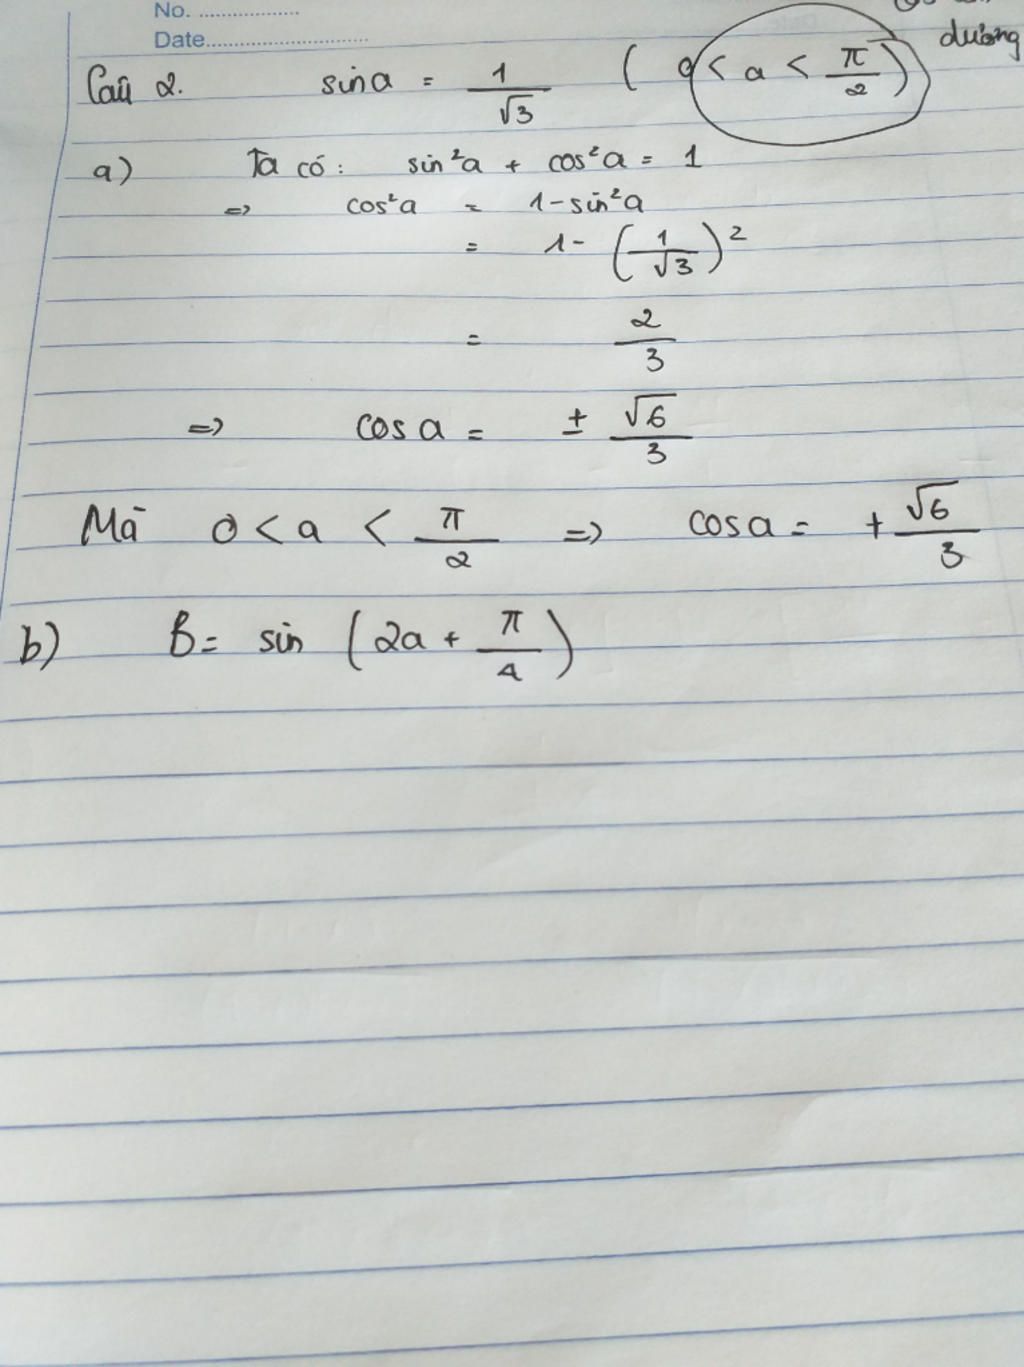 No. ....................
Date................................
dương
Câu 2. sin a = 1/√3 ( 0 < a < π/2 )
a) Ta có: sin²a + cos²a = 1
=> cos²a = 1 - sin²a
= 1 - (1/√3)²
= 2/3
=> cos a = ± √6/3
Mà 0 < a < π/2 => cos a = + √6/3
b) B = sin (2a + π/4)